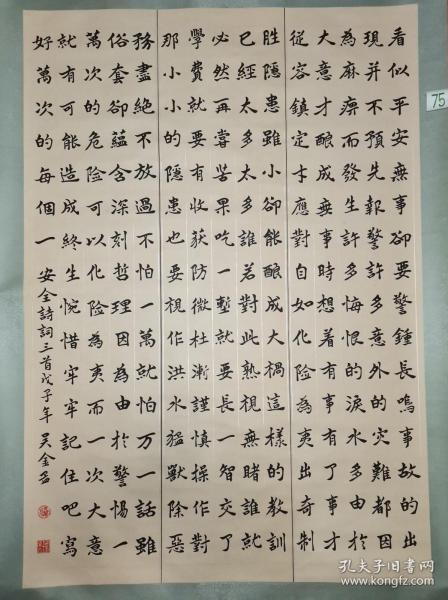 看似平安無事卻要警鍾長鳴事故的出
現并不預先報警許多意外的灾難都因
為麻痹而發生許多悔恨的淚水多由於
大意才釀成無事時想着有了事才
從容鎮定才應對自如化险為夷出奇制
胜隱患雖小卻能釀成大禍這樣的教訓
已經太多太多誰若對此熟視無睹誰就
必然再嘗苦果吃一塹就要長一智交了
學費就要有收获防微杜漸謹慎操作對
那小小的隱患也要視作洪水猛獸除惡
務盡絕不放過不怕一萬就怕万一話雖
俗套卻蘊含深刻哲理因為由於警惕一
萬次的危险可以化险為夷而一次大意
就有可能造成終生惋惜牢牢記住吧寫
好萬次的每個一
安全詩詞三首戊子年 吴金
75
孔夫子旧书网